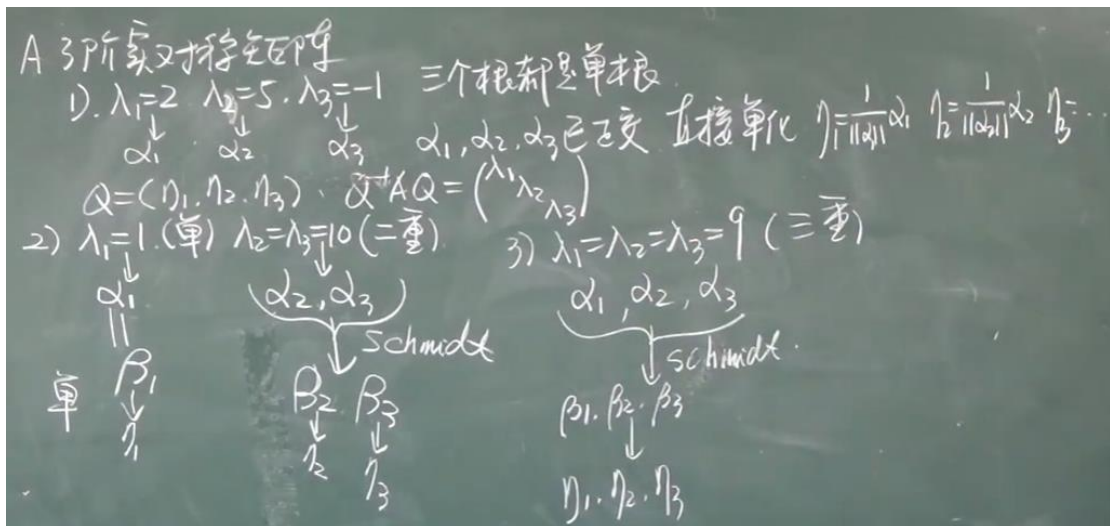 A 3阶实对称矩阵
1). λ₁=2 λ₂=5. λ₃=-1 三个根都是单根.
↓ ↓ ↓
α₁ α₂ α₃ α₁, α₂, α₃已正交 直接单化 η₁=1/||α₁|| α₁ η₂=1/||α₂|| α₂ η₃=...
Q=(η₁. η₂. η₃). Q⁻¹AQ=(λ₁ λ₂ λ₃)
2) λ₁=1.(单) λ₂=λ₃=10(二重)
↓ ↓
α₁ α₂, α₃
||
↓ schmidt
β₁ β₂. β₃
单
↓ ↓ ↓
η₁ η₂ η₃
3) λ₁=λ₂=λ₃=9 (三重)
α₁, α₂, α₃
↓ schmidt.
β₁. β₂. β₃
↓
η₁. η₂. η₃